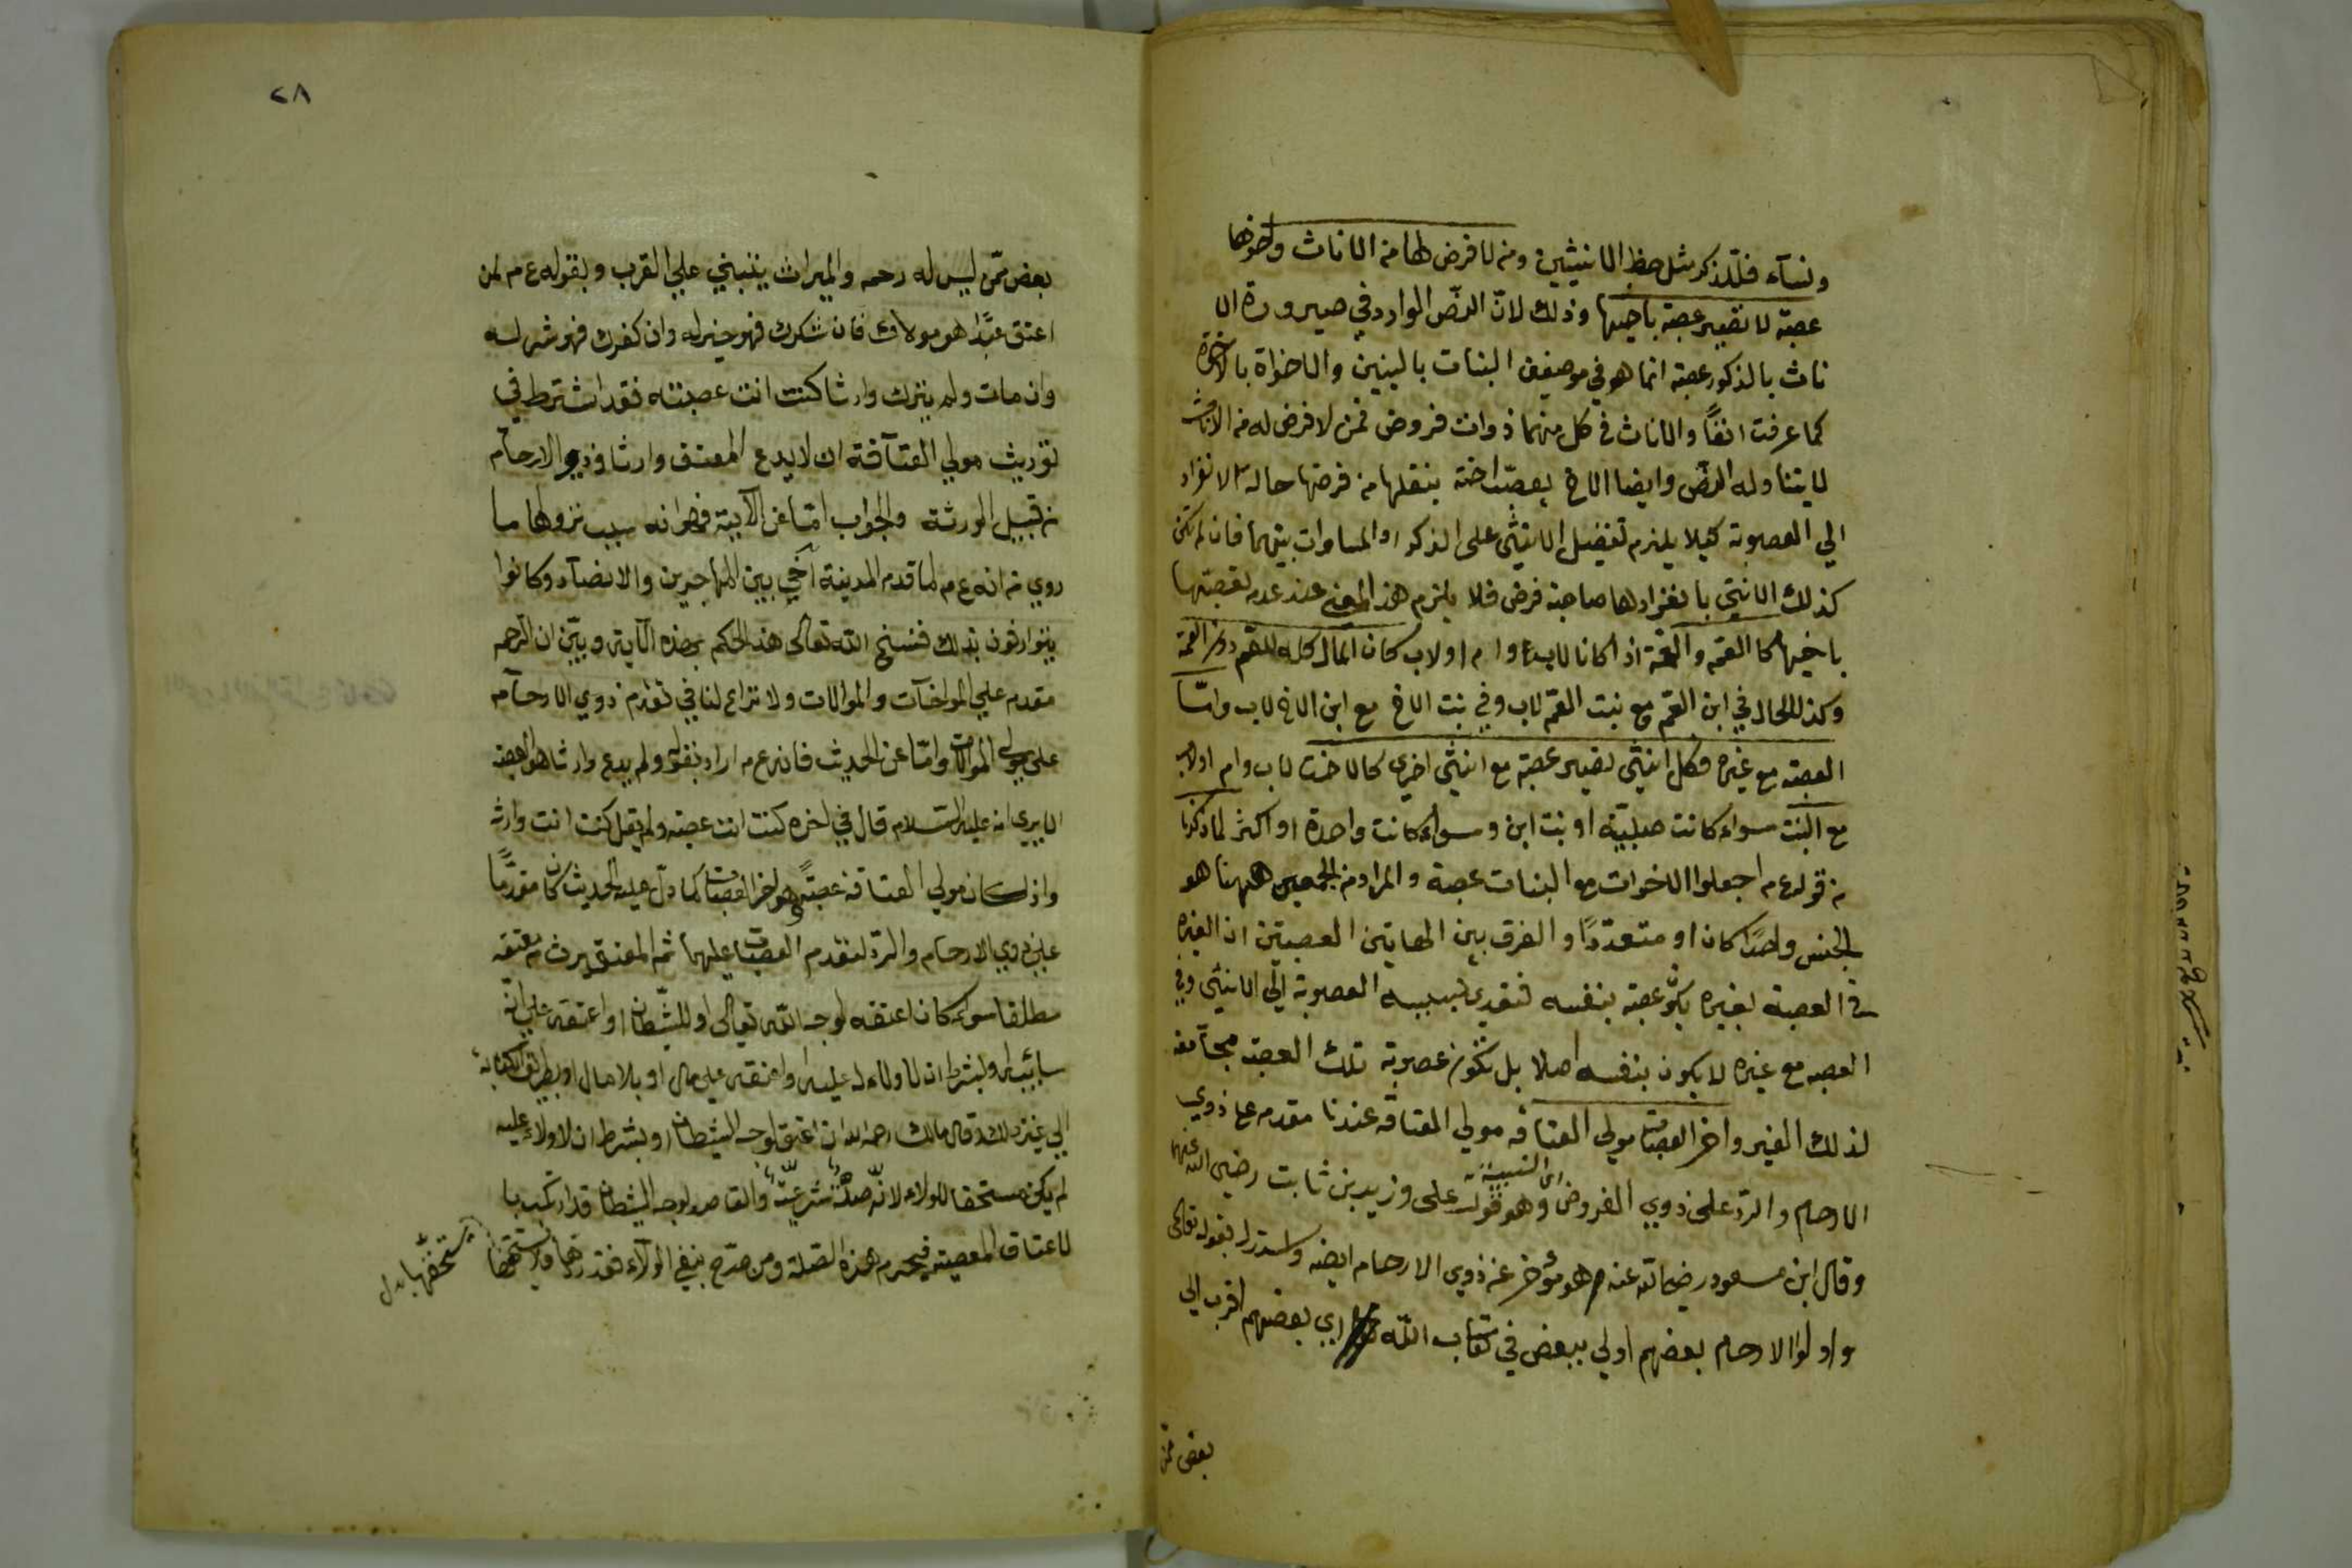 ونسآء فللذكر مثل حظ الانثيين ومن لا فرض لها من الاناث واخوها
عصبة لا تصير عصبة باخيها وذلك لانّ النصّ الوارد في صيرورة الا
ناث بالذكور عصبة انما هو في موضعين البنات بالبنين والاخواة بالاخوة
كما عرفت انفًا والاناث في كل منهما ذوات فروض فمن لا فرض له من الاناث
لا يتناوله النصّ وايضا الاخ يعصّب اخته بنقلها من فرضها حالة الانفراد
الي العصوبة كيلا يلزم تفضيل الانثى على الذكر او المساوات بينهما فان لم تكن
كذلك الانثى بانفرادها صاحبة فرض فلا يلزم هذا المعنى عند عدم تعصيبها
باخيها كالعم والعمّة اذا كانا لاب وام او لاب كان المال كله للعم دون العمّة
وكذا الحال في ابن العم مع بنت العم لاب وفي بنت الاخ مع ابن الاخ لاب وامّا
العصبة مع غيره فكل انثى تصير عصبة مع انثى اخرى كالاخت لاب وام او لاب
مع البنت سواء كانت صلبيّة او بنت ابن وسواء كانت واحدة او اكثر لما ذكرنا
من قوله ع م اجعلوا الاخوات مع البنات عصبة والمراد من الجمعين ههنا هو
الجنس واحدًا كان او متعددًا والفرق بين هاتين العصبتين ان الغير
في العصبة بغيره يكون عصبة بنفسه فتعدى بسببه العصوبة الى الانثى وفي
العصبة مع غيره لا يكون بنفسه اصلا بل تكون عصوبة تلك العصبة مجامعة
لذلك الغير واخر العصبات مولى العتاقة مولي العتاقة عندنا مقدم على ذوي
الارحام والرد على ذوي الفروض اى النسبية وهو قول على وزيد بن ثابت رضي الله عنهما
وقال ابن مسعود رضي الله عنه هو مؤخر عن ذوي الارحام ايضه واستدل بقوله تعالى
واولوا الارحام بعضهم اولي ببعض في كتاب الله اي بعضهم اقرب الي
بعض ممن
٢٨
بعض ممّن ليس له رحم والميراث ينبني علي القرب وبقوله ع م لمن
اعتق عبدًا هو مولاك فان شكرك فهو خير له وان كفرك فهو شر له
وان مات ولم يترك وارثا كنت انت عصبته فقد اشترط في
توريث مولي العتآقة ان لا يدع المعتق وارثا وذوو الارحام
من قبيل الورثة والجواب امّا عن الآية فهو انه سبب نزولها ما
روي من انه ع م لما قدم المدينة آخي بين المهاجرين والانصآر وكانوا
يتوارثون بذلك فنسخ الله تعالى هذا الحكم بهذه الآية وبيّن ان الرحم
مقدم علي المواخآت والموالات ولا نزاع لنا في تقدم ذوي الارحآم
على مولى الموالات وامّا عن الحديث فانه ع م اراد بقوله ولم يدع وارثا هو العصبة
الا يرى انه عليه السّلام قال في اخره كنت انت عصبته ولم يقل كنت انت وارثه
واذا كان مولي العتاقة عصبةً وهو اخر العصبات كما دلّ عليه الحديث كان مقدّمًا
على ذوي الارحام والردّ لتقدم العصبات عليهما ثم المعتق يرث من معتقه
مطلقا سواء كان اعتقه لوجه الله تعالى او للشّيطان او اعتقه على انّه
سائبة او بشرط ان لا ولاء له عليه او اعتقه على مال او بلا مال او بطريق الكتابة
الي غير ذلك وقال مالك رحمه الله ان اعتق لوجه الشيطان او بشرط ان لا ولاء عليه
لم يكن مستحقا للولاء لانّه صلةٌ شرعيّة والقاصد لوجه الشيطان قد ارتكب با
لاعتاق المعصية فيحرم هذه الصّلة ومن صرّح بنفي الولآء فقد ردها ولا يستحقها
يستحقها